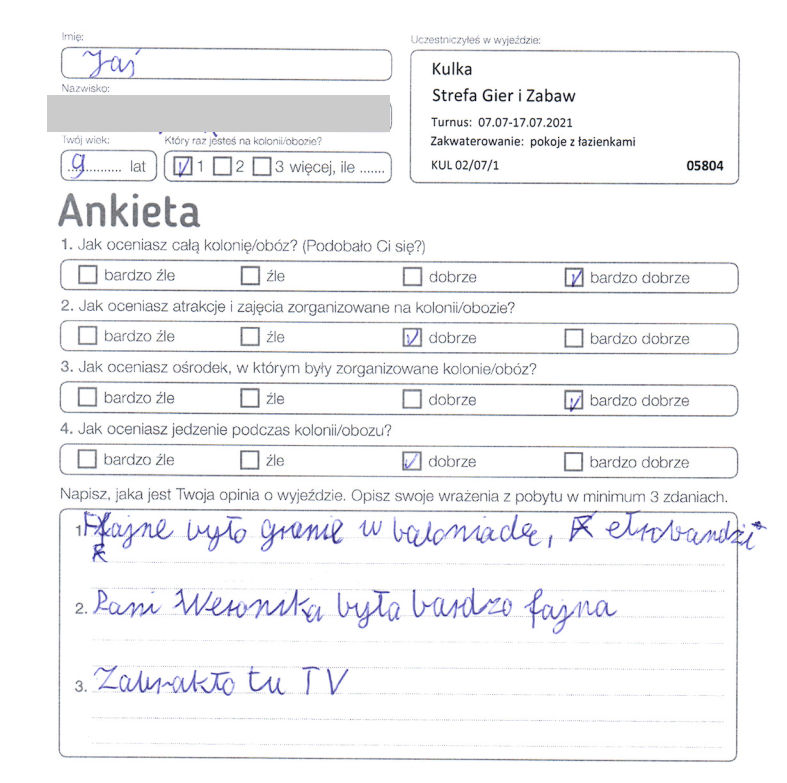 Imię:
Jaś
Uczestniczyłeś w wyjeździe:
Kulka
Strefa Gier i Zabaw
Turnus: 07.07-17.07.2021
Zakwaterowanie: pokoje z łazienkami
KUL 02/07/1 05804
Nazwisko:
Twój wiek:
9 lat
Który raz jesteś na kolonii/obozie?
1 2 3 więcej, ile .......
Ankieta
1. Jak oceniasz całą kolonię/obóz? (Podobało Ci się?)
bardzo źle źle dobrze bardzo dobrze
2. Jak oceniasz atrakcje i zajęcia zorganizowane na kolonii/obozie?
bardzo źle źle dobrze bardzo dobrze
3. Jak oceniasz ośrodek, w którym były zorganizowane kolonie/obóz?
bardzo źle źle dobrze bardzo dobrze
4. Jak oceniasz jedzenie podczas kolonii/obozu?
bardzo źle źle dobrze bardzo dobrze
Napisz, jaka jest Twoja opinia o wyjeździe. Opisz swoje wrażenia z pobytu w minimum 3 zdaniach.
1. Fajne było granie w baloniadę,
2. Pani Weronika była bardzo fajna
3. Zabrakło tu TV